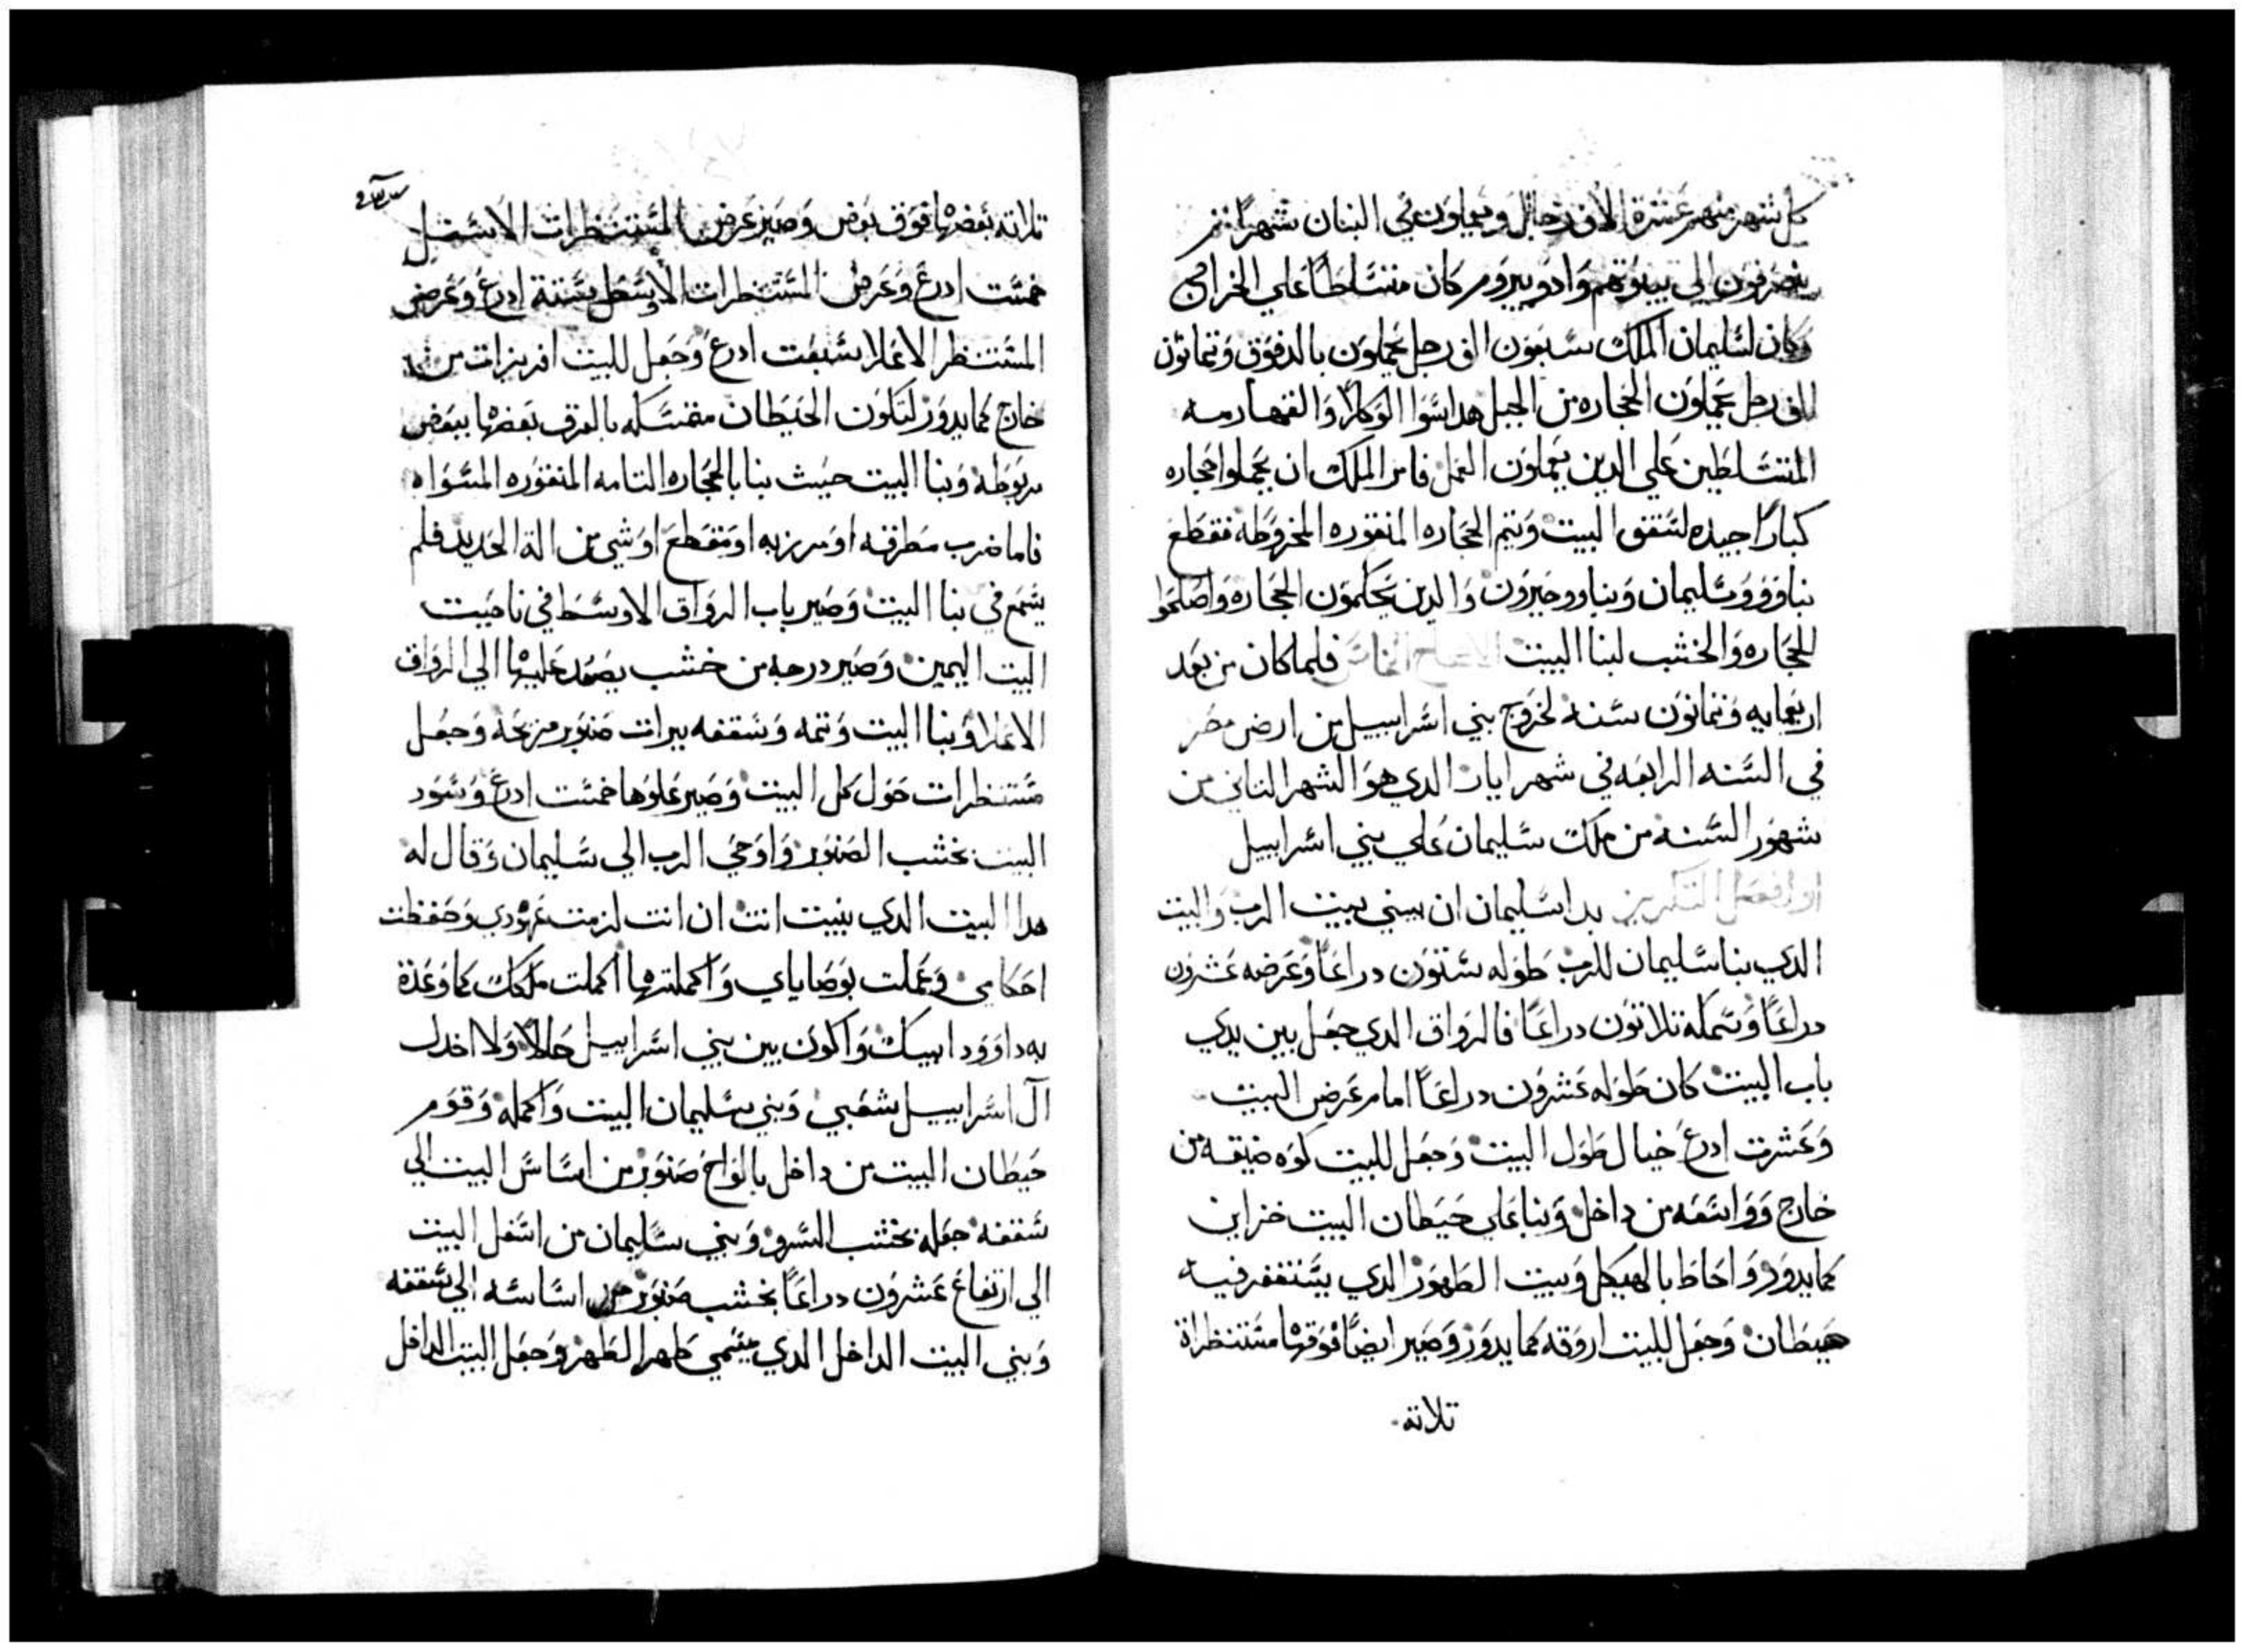 كل شهر منهم عشرة الاف رجال ويعملون في البنان شهرًا ثم
ينصرفون الي بيوتهم وادونيروم كان متسلطًا علي الخراج
وكان لسليمان الملك سبعون الف رجل يحملون بالدفوق وتمانون
الف رجل يحملون الحجاره من الجبل هدا سوا الوكلا والقهارمه
المتسلطين علي الدين يعملون العمل فامر الملك ان يحملوا حجاره
كبارًا جيده لسقف البيت وتيم الحجاره المنقوره المخروطه فقطع
بناووو سليمان وبناوو حيرون والدين يحكمون الحجاره واصلحوا
الحجاره والخشب لبنا البيت الاصحاح فلما كان من بعد
اربعمايه وتمانون سنه لخروج بني اسراييل من ارض مصر
في السنه الرابعه في شهر ايار الدي هو الشهر التاني من
شهور السنه من ملك سليمان علي بني اسراييل
بدا سليمان ان يبني بيت الرب والبيت
الدي بنا سليمان للرب طوله ستون دراعًا وعرضه عشرون
دراعًا وسمكه تلاتون دراعًا فالرواق الدي جعل بين يدي
باب البيت كان طوله عشرون دراعًا امام عرض البيت
وعشرت ادرع خيال طول البيت وجعل للبيت كوه ضيقه من
خارج وواسعه من داخل وبنا علي حيطان البيت خزاين
كما يدور واحاط بالهيكل وبيت الطهور الدي يستغفر فيه
هيطان وجعل للبيت اروقه كما يدور وصير ايضًا فوقها مستنظراة
تلاته
تلاته بعضها فوق بعض وصير عرض المستنظرات الاسفل
خمست ادرع وعرض المستنظرات الاوسط بستة ادرع وعرض
المستنظر الاعلا بسبعت ادرع وجعل للبيت افريزات من
خارج كما يدور لتكون الحيطان متمسكه بالغرف بعضها ببعض
مربوطه وبنا البيت حيث بنا بالحجاره التامه المنقوره المسواه
فاما ضرب مطرقه او مرزبه او مقطع او شي من الة الحديد فلم
يسمع في بنا البيت وصير باب الرواق الاوسط في ناحيت
البيت اليمين وصير درجه من خشب يصعد عليها الي الرواق
الاعلا وبنا البيت وتمه وسقفه بيرات صنوبر مزيحة وجعل
مستنظرات حول كل البيت وصير علوها خمست ادرع وسود
البيت بخشب الصنوبر واوحي الرب الي سليمان وقال له
هدا البيت الدي بنيت انت ان انت لزمت عهودي وحفظت
احكامي وعملت بوصاياي واكملتها اكملت ملكك كما وعدة
به داوود ابيك واكون بين بني اسراييل حالًا ولا اخدل
آل اسراييل شعبي وبني سليمان البيت واكمله وقوم
حيطان البيت من داخل بالواح صنوبر من اساس البيت الي
سقفه جعله بخشب السرو وبني سليمان من اسفل البيت
الي ارتفاع عشرون دراعًا بخشب صنوبر من اساسه الي سقفه
وبني البيت الداخل الدي يسمي طهر الطهر وجعل البيت الداخل